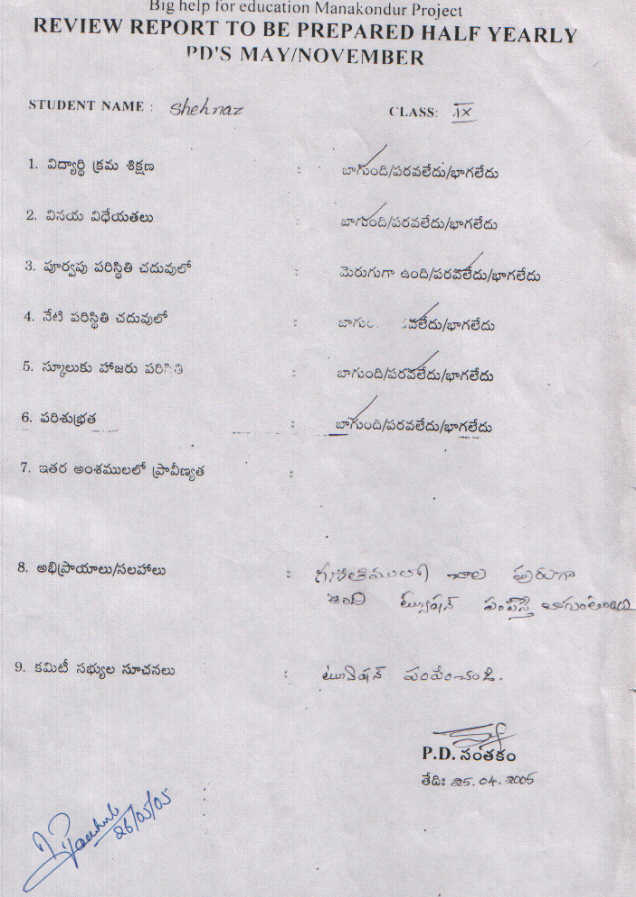 Big help for education Manakondur Project
REVIEW REPORT TO BE PREPARED HALF YEARLY
PD'S MAY/NOVEMBER
STUDENT NAME : Shehnaz CLASS: IX
1. విద్యార్థి క్రమ శిక్షణ : బాగుంది/పరవలేదు/భాగలేదు
2. వినయ విధేయతలు : బాగుంది/పరవలేదు/భాగలేదు
3. పూర్వపు పరిస్థితి చదువులో : మెరుగుగా ఉంది/పరవలేదు/భాగలేదు
4. నేటి పరిస్థితి చదువులో : బాగు వలేదు/భాగలేదు
5. స్కూలుకు హాజరు పరిస్థితి : బాగుంది/పరవలేదు/భాగలేదు
6. పరిశుభ్రత : బాగుంది/పరవలేదు/భాగలేదు
7. ఇతర అంశములలో ప్రావీణ్యత :
8. అభిప్రాయాలు/సలహాలు : గణితములో చాల
ఉంది ట్యూషన్ పంపిస్తే బాగుంటుంది
9. కమిటీ సభ్యుల సూచనలు : ట్యూషన్ పంపించండి.
P.D. సంతకం
తేదిః 25.04.2005
26/05/05